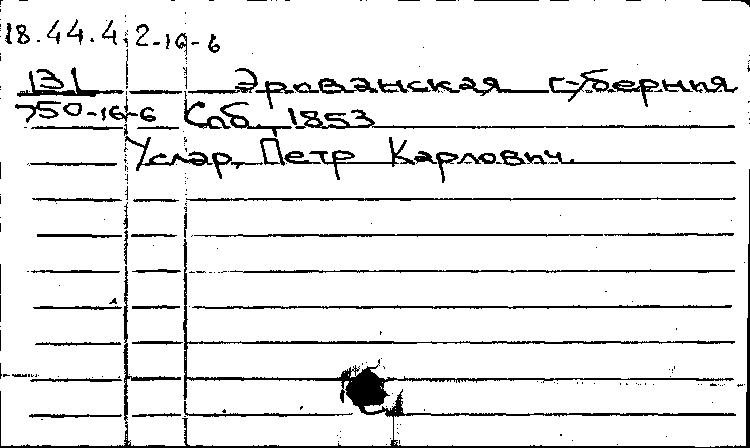 18.44.4.2-16-6
131 Эриванская губерния
750-16-6 Спб. 1853
Услар, Петр Карлович.